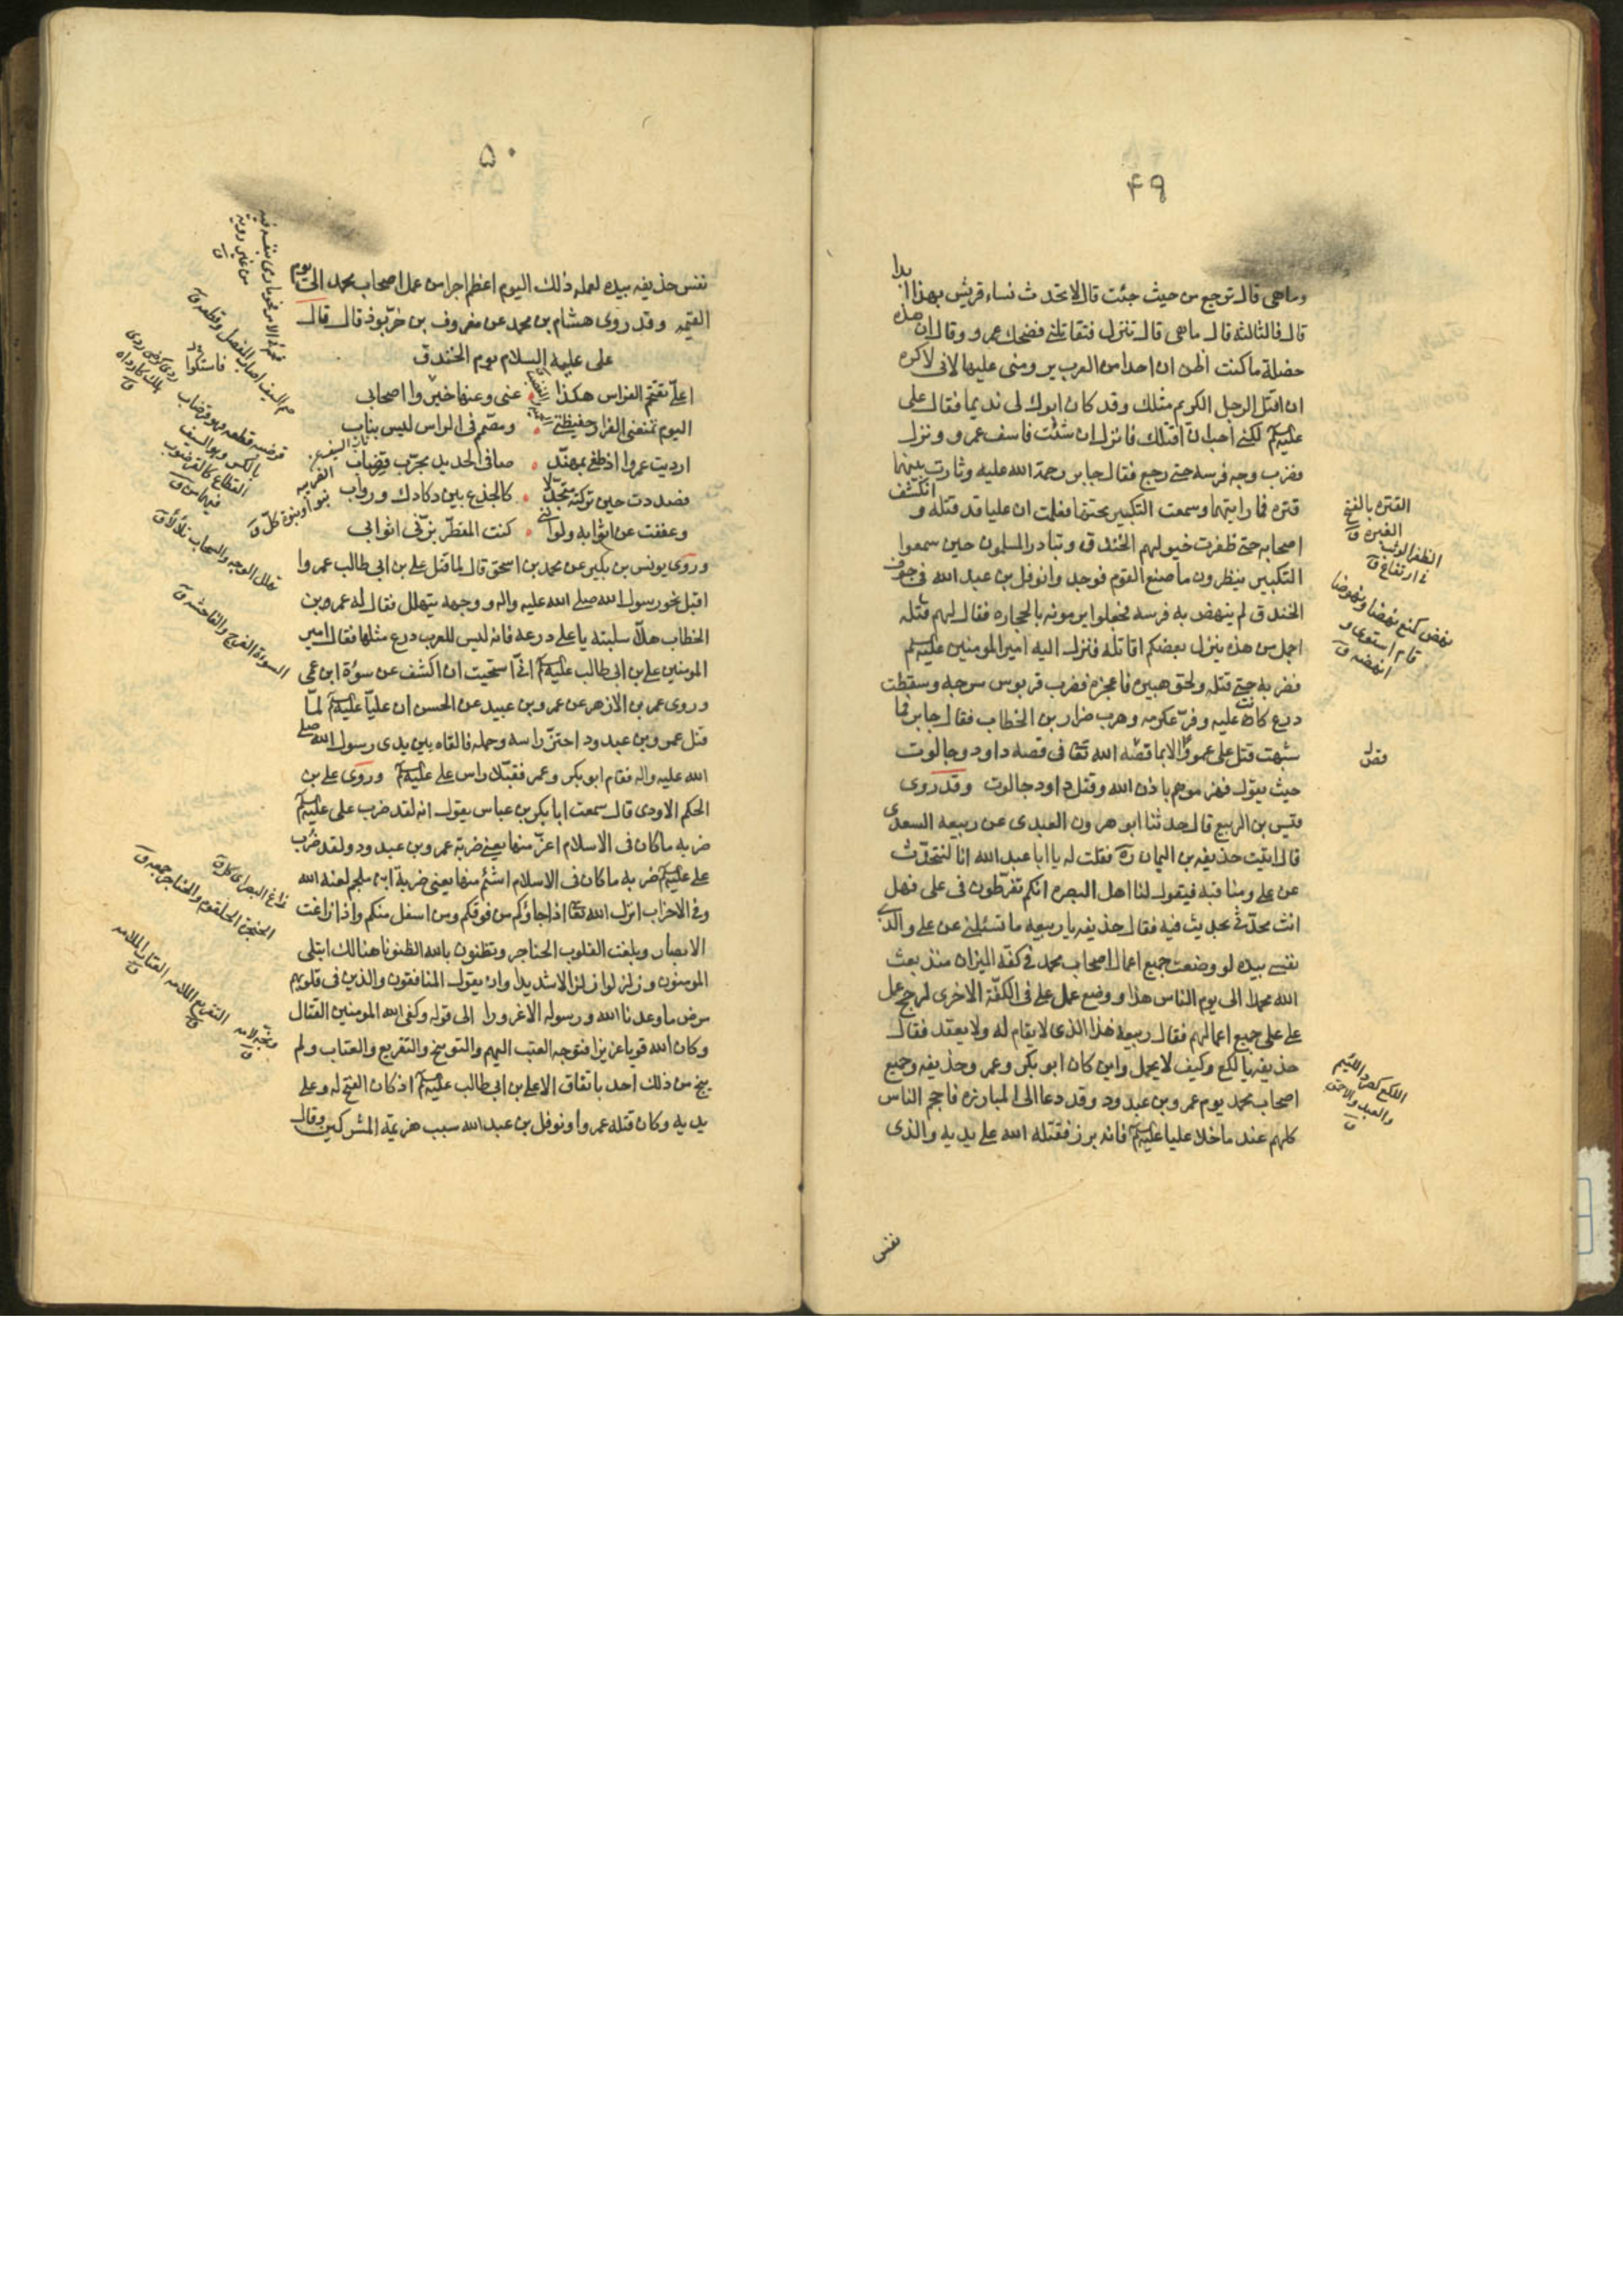 ۴۹
وماهى قال ترجع من حيث جئت قال لا تحدث نساء قريش بهذا ابدا
قال فالثالثة قال ماهى قال تنزل فتقاتلنى فضحك عمرو وقال ان هذه
خصلة ما كنت اظن ان احدا من العرب يرومنى عليها لانى لاكره
ان اقتل الرجل الكريم مثلك وقد كان ابوك لى نديما فقال على
عليه السلام لكنى احب ان اقتلك فانزل ان شئت فاسف عمرو ونزل
وضرب وجه فرسه حتى رجع فقال جابر رحمة الله عليه وثارت بينهما
قتره فما رايتهما وسمعت التكبير تحتها فعلمت ان عليا قد قتله و انكشف
اصحابه حتى طفرت خيولهم الخندق وتبادر المسلمون حين سمعوا
التكبير ينظرون ما صنع القوم فوجدوا نوفل بن عبد الله فى جوف
الخندق لم ينهض به فرسه فجعلوا يرمونه بالحجاره فقال لهم قتله
اجمل من هذه ينزل بعضكم اقاتله فنزل اليه امير المومنين عليه السلم
فضربه حتى قتله ولحق هبيره فاعجزه فضرب قربوس سرجه وسقطت
درع كانت عليه وفرّ عكرمه وهرب ضرار بن الخطاب فقال جابر فما
شبهت قتل على عمروا الا بما قصّه الله تعا فى قصه داود وجالوت
حيث يقول فهزموهم باذن الله وقتل داود جالوت وقد روى
قيس بن الربيع قال حدثنا ابو هرون العبدى عن ربيعه السعدى
قال اتيت حذيفه بن اليمان ره فقلت له يا ابا عبد الله انا لنتحدّث
عن على ومناقبه فيقول لنا اهل البصره انكم تفرّطون فى على فهل
انت محدّثى بحديث فيه فقال حذيفه يا ربيعه ما تسئلنى عن على والذى
نفسى بيده لو وضعت جميع اعمال اصحاب محمد فى كفّه الميزان منذ بعث
الله محمدا الى يوم الناس هذا ووضع عمل على فى الكفّة الاخرى لرجح عمل
على على جميع اعمالهم فقال ربيعه هذا الذى لا يقام له ولا يعقد فقال
حذيفه يا لكع وكيف لا يحمل واين كان ابو بكر وعمر وحذيفه وجميع
اصحاب محمد يوم عمرو بن عبد ود وقد دعا الى المبارزه فاحجم الناس
كلهم عنه ما خلا عليا عليه السلم فانه برز فقتله الله على يديه والذى
نفس
القتره بالفتح
الغبره ق
الطفر الوثب
فى ارتفاع ق
نهض كمنع نهضا ونهوضا
قام استوى و
انهضه ق
قصّ
اللكع كصرد اللئيم
والعبد والاحمق
ق
۵۰
نفس حذيفه بيده لعمله ذلك اليوم اعظم اجرا من عمل اصحاب محمد الى يوم
القيمه وقد روى هشام بن محمد عن معروف بن خرّبوذ قال قال
على عليه السلام يوم الخندق
اعلىّ تقتحم الفوارس هكذا عنى وعنها خبّروا اصحابى
اليوم تمنعنى الفرار حفيظتى ومصمم فى الراس ليس بناب
ارديت عمروا اذ طغى بمهنّد صافى الحديد مجرّب قضّاب
فصددت حين تركته متجدّلا كالجذع بين دكادك ورواب
وعففت عن اثوابه ولو اننى كنت المقطّر بزّنى اثوابى
وروى يونس بن بكير عن محمد بن اسحق قال لما قتل على بن ابى طالب عمروا
اقبل نحو رسول الله صلى الله عليه واله و وجهه يتهلل فقال له عمر بن
الخطاب هلّا سلبته يا على درعه فانه ليس للعرب درع مثلها فقال امير
المومنين على بن ابى طالب عليه السلم انّى استحيت ان اكشف عن سوءة ابن عمى
وروى عمر بن الازهر عن عمرو بن عبيد عن الحسن ان عليّا عليه السلم لمّا
قتل عمرو بن عبد ود احتزّ راسه وحمله فالقاه بين يدى رسول الله صلى
الله عليه واله فقام ابو بكر وعمر فقبّلا راس على عليه السلم وروى على بن
الحكم الاودى قال سمعت ابا بكر بن عياس يقول انه لقد ضرب على عليه السلم
ضربه ما كان فى الاسلام اعزّ منها يعنى ضربة عمرو بن عبد ود ولقد ضرب
على عليه السلم ضربه ما كان فى الاسلام اشئم منها يعنى ضربة ابن ملجم لعنه الله
وفى الاحزاب انزل الله تعا اذا جاؤكم من فوقكم ومن اسفل منكم واذ زاغت
الابصار وبلغت القلوب الحناجر وتظنون بالله الظنونا هنالك ابتلى
المومنون وزلزلوا زلزالا شديدا واذ يقول المنافقون والذين فى قلوبهم
مرض ما وعدنا الله ورسوله الا غرورا الى قوله وكفى الله المومنين القتال
وكان الله قويا عزيزا فتوجه العتب اليهم والتوبيخ والتقريع والعتاب ولم
ينج من ذلك احد باتفاق الا على بن ابى طالب عليه السلم اذ كان الفتح له وعلى
يديه وكان قتله عمروا ونوفل بن عبد الله سبب هزيمة المشركين وقال
قرضبه قطعه وهو قرضاب
بالكسر وهو السيف
القطاع كالقرضوب
فيهما ق
تهلل الوجه والسحاب تلألأ ق
السوءة الفرج والفاحشه ق
زاغ البصر اى كلّ ق
الحنجرة الحلقوم والحناجر جمعه ق